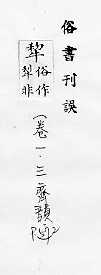 俗書刊誤
犂俗作犁非
(卷一.三齊韻